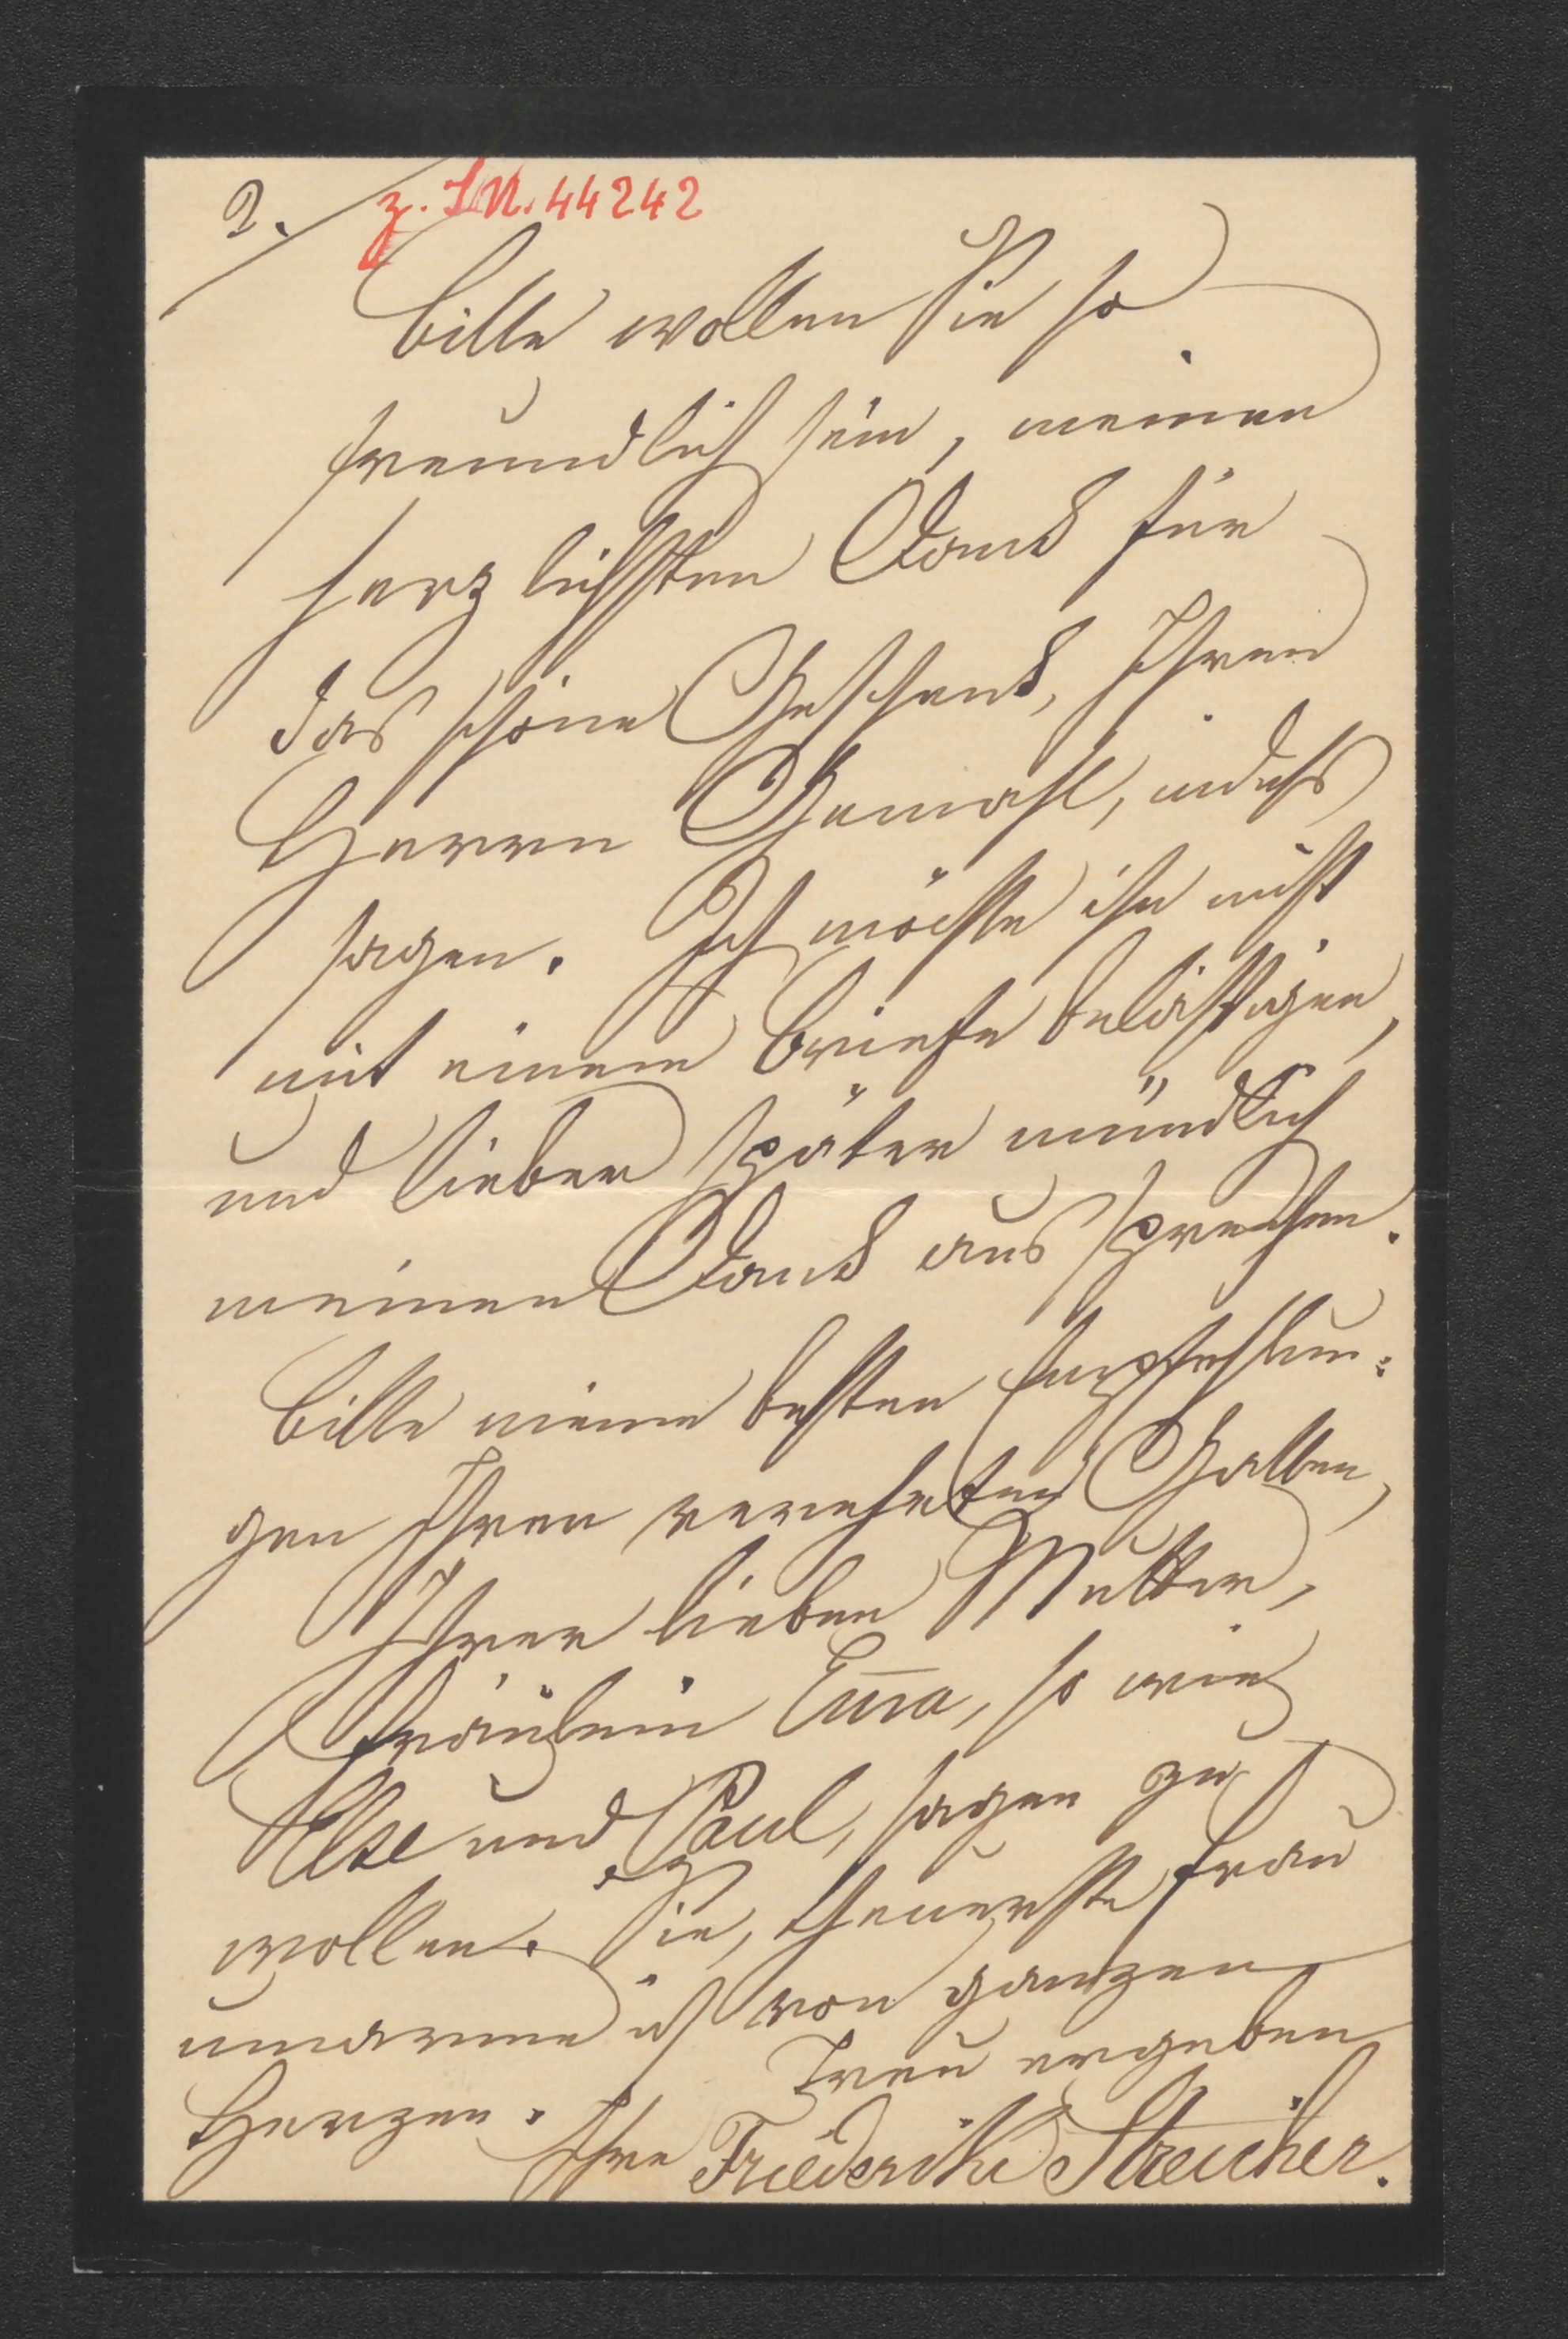 2./ z. I.N. 44242
Bitte wollen Sie so
freundlich sein, meinen
herzlichsten Dank für
das schöne Geschenk, Ihren
Herrn Gemahl, indeß
sagen. Ich möchte ihn nicht
mit einem Briefe belästigen,
und lieber später mündlich
meinen Dank aussprechen.
Bitte meine besten Empfehlun:
gen Ihren verehrten Gatten,
Ihrer lieben Mutter,
Fräulein Em̅a, so wie
Else und Paul, sagen zu
wollen. Sie, theuerste Frau
umarme ich von ganzen
Herzen. Treu ergeben
Ihre Friederike Streicher.